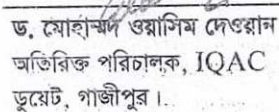 ড. মোহাম্মদ ওয়াসিম দেওয়ান
অতিরিক্ত পরিচালক, IQAC
ডুয়েট, গাজীপুর।